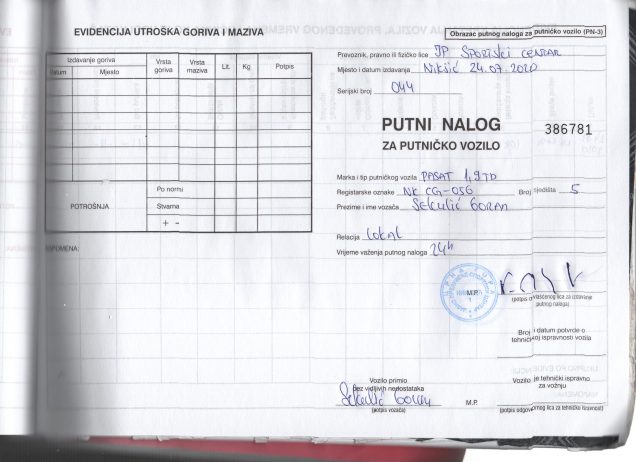 EVIDENCIJA UTROŠKA GORIVA I MAZIVA
Izdavanje goriva
Datum Mjesto
Vrsta goriva
Vrsta maziva
Lit.
Kg
Potpis
POTROŠNJA
Po normi
Stvarna
+ -
NAPOMENA:
Obrazac putnog naloga za putničko vozilo (PN-3)
Prevoznik, pravno ili fizičko lice JP SPORTSKI CENTAR
Mjesto i datum izdavanja Nikšić 24.07.2020
Serijski broj 044
PUTNI NALOG
ZA PUTNIČKO VOZILO
386781
Marka i tip putničkog vozila PASAT 1,9 TD
Registarske oznake NK CG-056 Broj sjedišta 5
Prezime i ime vozača Sekulić Goran
Relacija Lokal
Vrijeme važenja putnog naloga 24h
M.P.
1
(potpis ovlašćenog lica za izdavanje
putnog naloga)
Broj i datum potvrde o
tehničkoj ispravnosti vozila
Vozilo primio
bez vidljivih nedostataka
Sekulić Goran
(potpis vozača)
M.P.
Vozilo je tehnički ispravno
za vožnju
(potpis odgovornog lica za tehničku ispravnost)